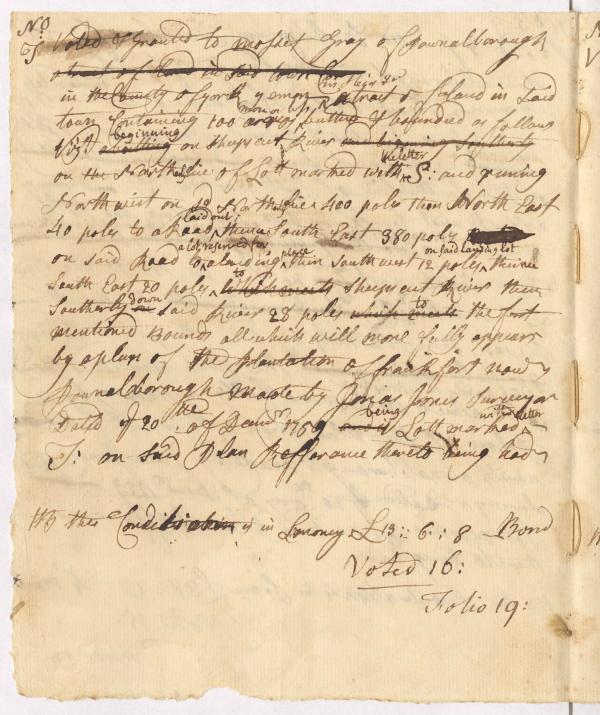 No
65 Voted & Granted to Moses Gray of Pownalborough
a tract of Land in said town
in the County of york yemon his Heirs &c a tract of Land in said
town Containing 100 acres more or less butted & bounded as follows
Vizt abutting beginning on sheepscut River and biginning Southerly
on the North side of Lott marked with the Letter S: and runing
North west on sd North side 400 poles then North East
40 poles to a Road laid out, thence South East 380 poles
on said Road to a landing place, then south west 12 poles on said landing lot, thence
South East 20 poles to which meets sheepscut River then
Southerly down on said River 28 poles which meets to the first
mentioned Bounds all which will more fully appear
by a plan of the plantation of frankfort now
Pownalborough Made by Jonas Jones Surveyor
Dated ye 20 the of Decemr 1759 and is being Lott marked with the Letter
T: on said Plan Refferance thereto being had
NB the Condition is in Lmoney £13:: 6: 8 Bond
Voted 16:
Folio 19: